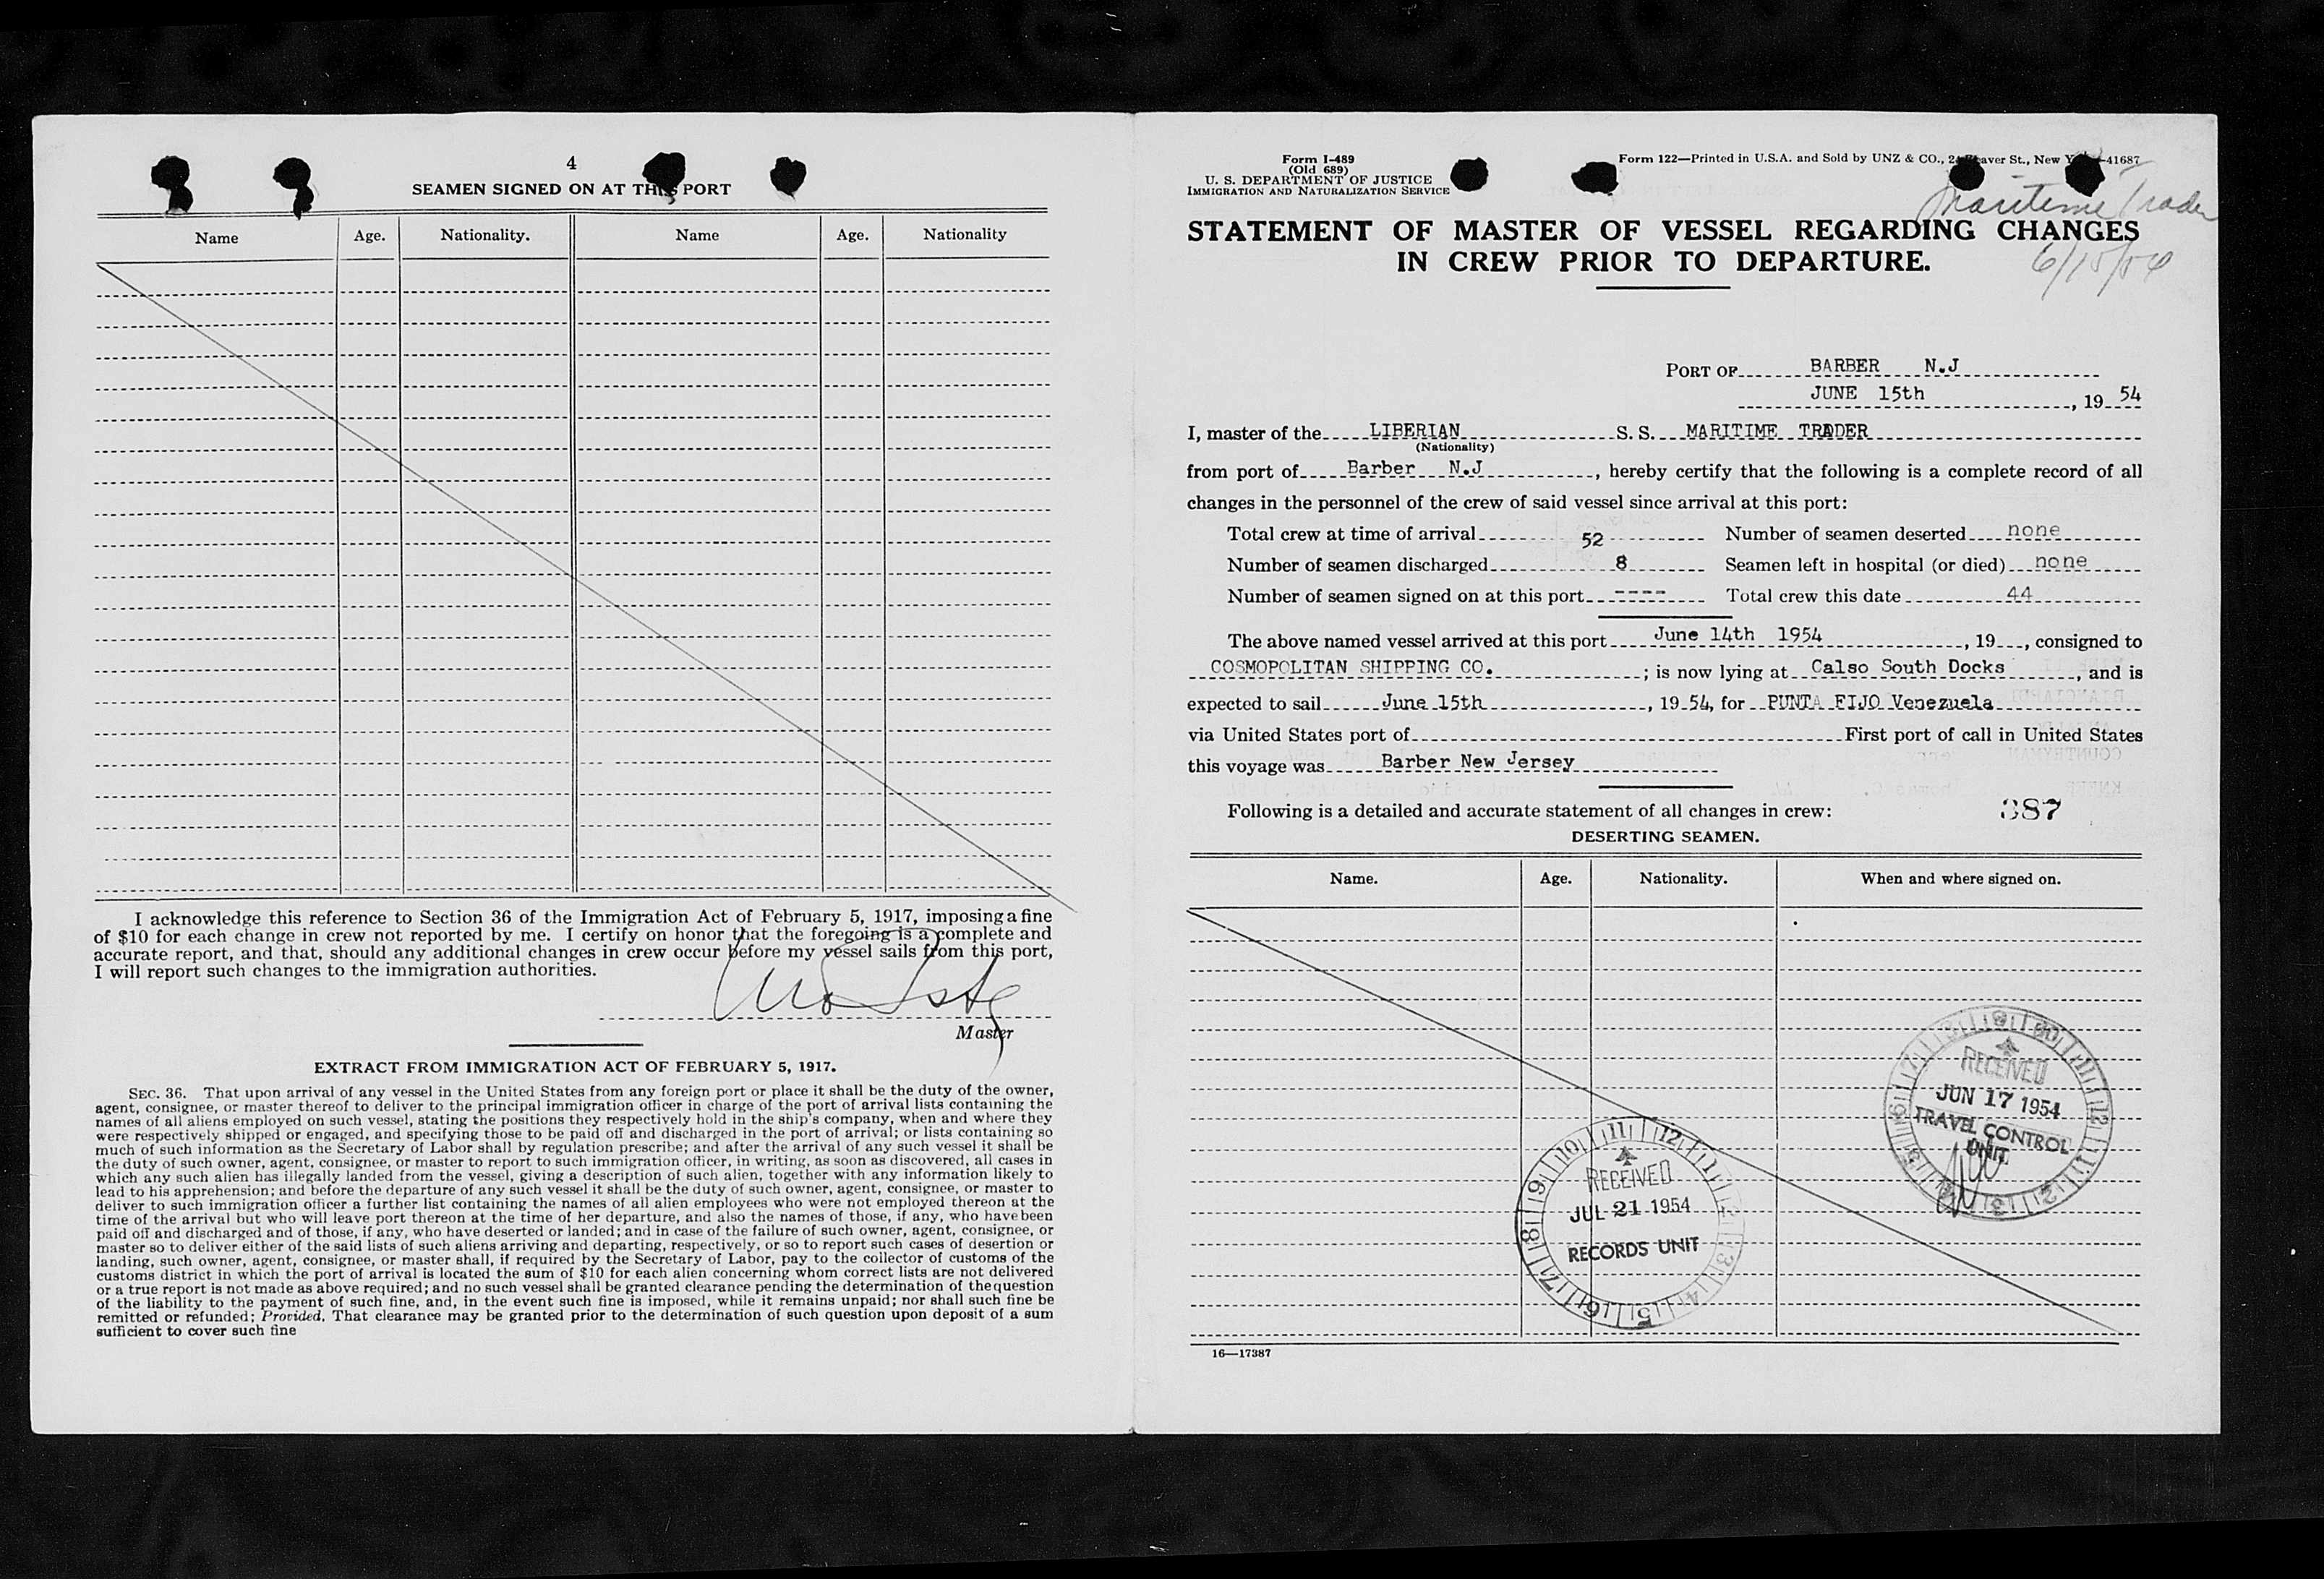 4
SEAMEN SIGNED ON AT THIS PORT
Name Age. Nationality. Name Age. Nationality
I acknowledge this reference to Section 36 of the Immigration Act of February 5, 1917, imposing a fine
of $10 for each change in crew not reported by me. I certify on honor that the foregoing is a complete and
accurate report, and that, should any additional changes in crew occur before my vessel sails from this port,
I will report such changes to the immigration authorities.
Master
EXTRACT FROM IMMIGRATION ACT OF FEBRUARY 5, 1917.
SEC. 36. That upon arrival of any vessel in the United States from any foreign port or place it shall be the duty of the owner,
agent, consignee, or master thereof to deliver to the principal immigration officer in charge of the port of arrival lists containing the
names of all aliens employed on such vessel, stating the positions they respectively hold in the ship's company, when and where they
were respectively shipped or engaged, and specifying those to be paid off and discharged in the port of arrival; or lists containing so
much of such information as the Secretary of Labor shall by regulation prescribe; and after the arrival of any such vessel it shall be
the duty of such owner, agent, consignee, or master to report to such immigration officer, in writing, as soon as discovered, all cases in
which any such alien has illegally landed from the vessel, giving a description of such alien, together with any information likely to
lead to his apprehension; and before the departure of any such vessel it shall be the duty of such owner, agent, consignee, or master to
deliver to such immigration officer a further list containing the names of all alien employees who were not employed thereon at the
time of the arrival but who will leave port thereon at the time of her departure, and also the names of those, if any, who have been
paid off and discharged and of those, if any, who have deserted or landed; and in case of the failure of such owner, agent, consignee, or
master so to deliver either of the said lists of such aliens arriving and departing, respectively, or so to report such cases of desertion or
landing, such owner, agent, consignee, or master shall, if required by the Secretary of Labor, pay to the collector of customs of the
customs district in which the port of arrival is located the sum of $10 for each alien concerning whom correct lists are not delivered
or a true report is not made as above required; and no such vessel shall be granted clearance pending the determination of the question
of the liability to the payment of such fine, and, in the event such fine is imposed, while it remains unpaid; nor shall such fine be
remitted or refunded; Provided, That clearance may be granted prior to the determination of such question upon deposit of a sum
sufficient to cover such fine
Form I-489
(Old 689)
U. S. DEPARTMENT OF JUSTICE
IMMIGRATION AND NATURALIZATION SERVICE
Form 122—Printed in U.S.A. and Sold by UNZ & CO., St., New 41687
Maritime Trader
6/15/54
STATEMENT OF MASTER OF VESSEL REGARDING CHANGES
IN CREW PRIOR TO DEPARTURE.
PORT OF BARBER N.J
JUNE 15th, 19 54
I, master of the LIBERIAN S. S. MARITIME TRADER
(Nationality)
from port of Barber N.J, hereby certify that the following is a complete record of all
changes in the personnel of the crew of said vessel since arrival at this port:
Total crew at time of arrival 52 Number of seamen deserted none
Number of seamen discharged 8 Seamen left in hospital (or died) none
Number of seamen signed on at this port ---- Total crew this date 44
The above named vessel arrived at this port June 14th 1954, 19, consigned to
COSMOPOLITAN SHIPPING CO.; is now lying at Calso South Docks, and is
expected to sail June 15th, 19 54, for PUNTA FIJO Venezuela
via United States port of First port of call in United States
this voyage was Barber New Jersey
Following is a detailed and accurate statement of all changes in crew: 387
DESERTING SEAMEN.
Name. Age. Nationality. When and where signed on.
RECEIVED
JUN 17 1954
TRAVEL CONTROL
UNIT
RECEIVED
JUL 21 1954
RECORDS UNIT
16—17387